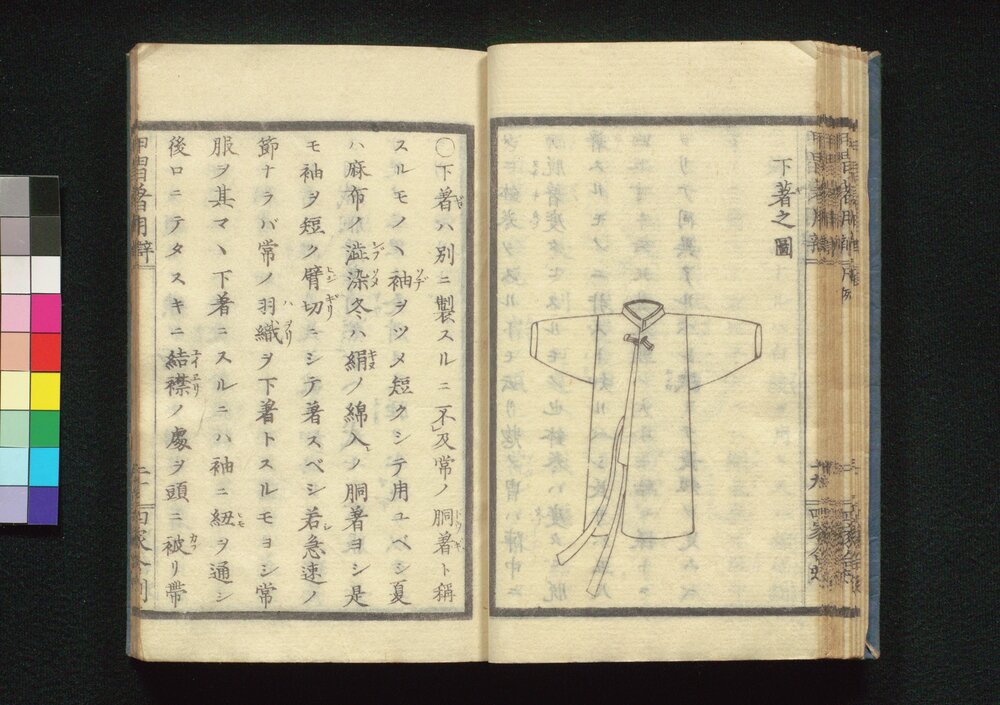 下著之圖
〇下著ハ別ニ製スルニ不及常ノ胴著ト稱
スルモノヽ袖ヲツメ短クシテ用ユベシ夏
ハ麻布ノ澁染冬ハ絹ノ綿入ノ胴著ヨシ是
モ袖ヲ短ク臂切ニシテ著スベシ若急速ノ
節ナラバ常ノ羽織ヲ下著トスルモヨシ常
服ヲ其マヽ下著ニスルニハ袖ニ紐ヲ通シ
後ロニテタスキニ結襟ノ處ヲ頭ニ被リ帶